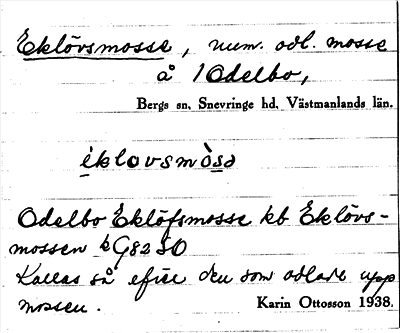 Eklövsmosse, num. odl. mosse
å 1 Odelbo,
Bergs sn, Snevringe hd, Västmanlands län.
èklovsmòsa
Odelbo Eklöfsmosse kb Eklövs-
mossen k G82 SO
Kallas så efter den som odlade upp
mossen.
Karin Ottosson 1938.